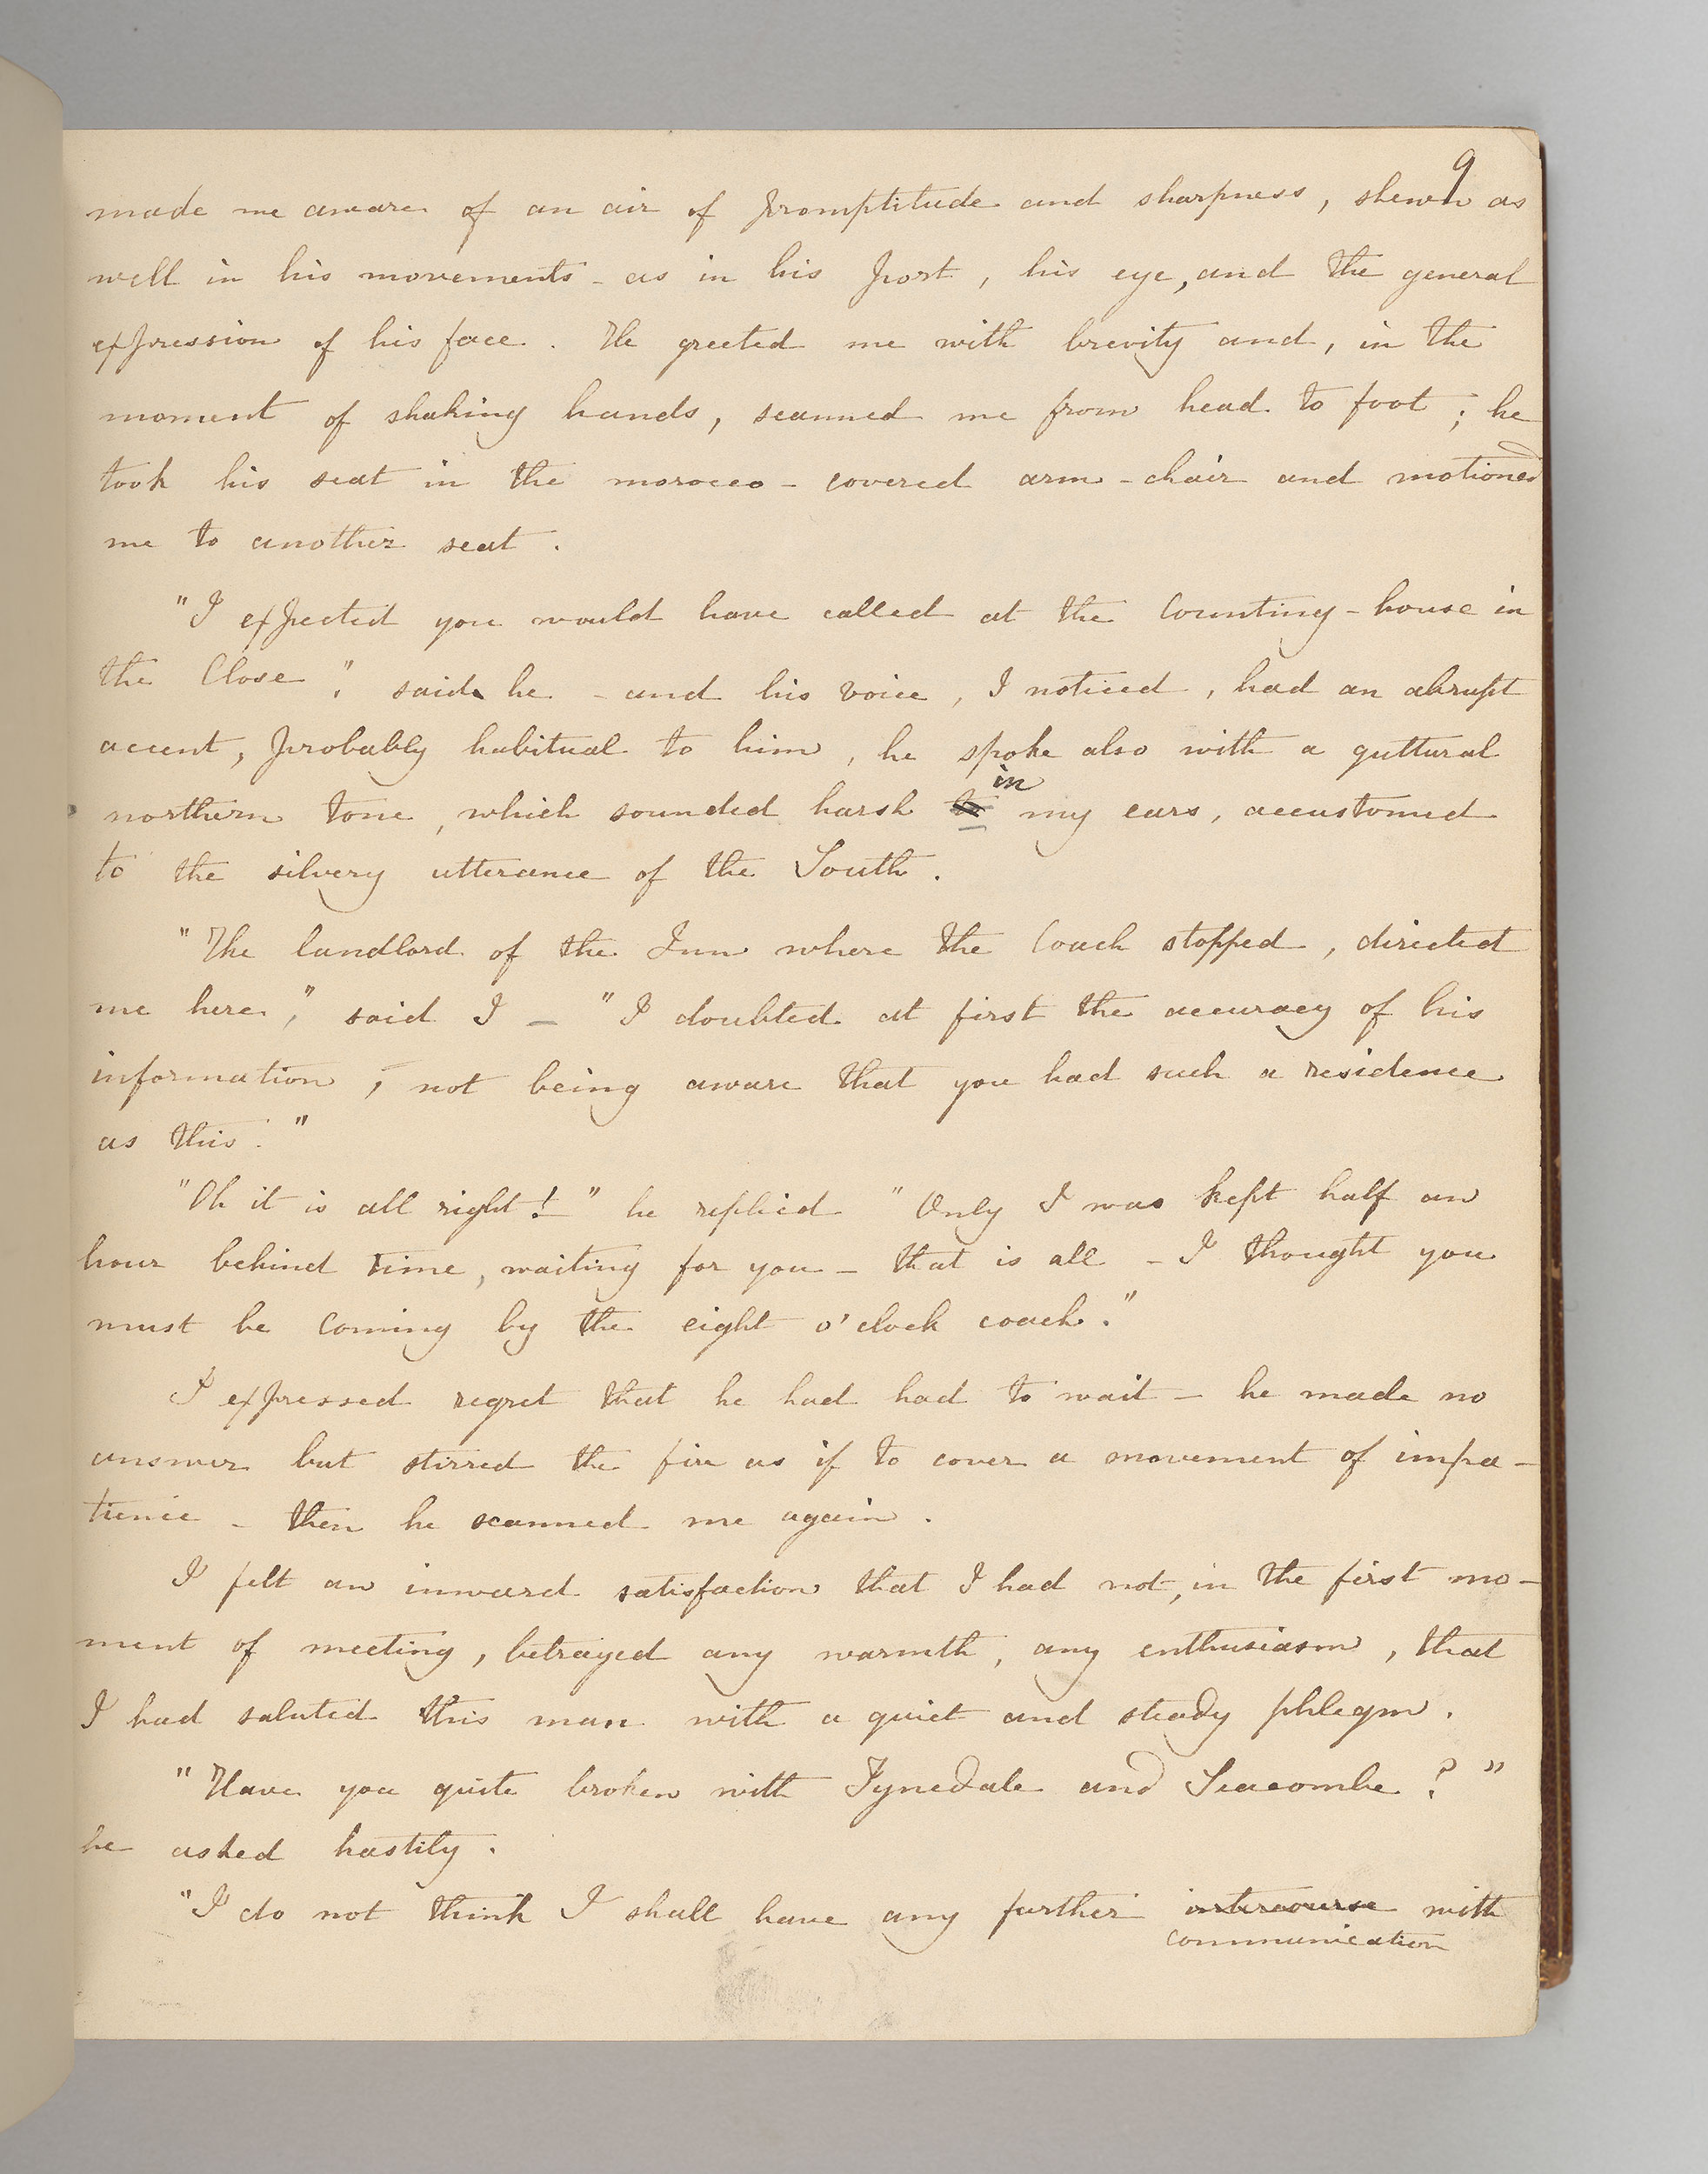 9
made me aware of an air of promptitude and sharpness, shewn as
well in his movements - as in his port, his eye, and the general
expression of his face. He greeted me with brevity and, in the
moment of shaking hands, scanned me from head to foot; he
took his seat in the morocco-covered arm-chair and motioned
me to another seat.
"I expected you would have called at the Counting-house in
the Close," said he - and his voice, I noticed, had an abrupt
accent, probably habitual to him, he spoke also with a guttural
in
northern tone, which sounded harsh to my ears, accustomed
to the silvery utterance of the South.
"The landlord of the Inn where the Coach stopped, directed
me here," said I - "I doubted at first the accuracy of his
information, not being aware that you had such a residence
as this."
"Oh it is all right!" he replied "Only I was kept half an
hour behind time, waiting for you - that is all - I thought you
must be coming by the eight o'clock coach."
I expressed regret that he had had to wait - he made no
answer but stirred the fire as if to cover a movement of impa-
tience - then he scanned me again.
I felt an inward satisfaction that I had not, in the first mo-
ment of meeting, betrayed any warmth, any enthusiasm, that
I had saluted this man with a quiet and steady phlegm.
"Have you quite broken with Tynedale and Seacombe?"
he asked hastily.
"I do not think I shall have any further intercourse with
communication